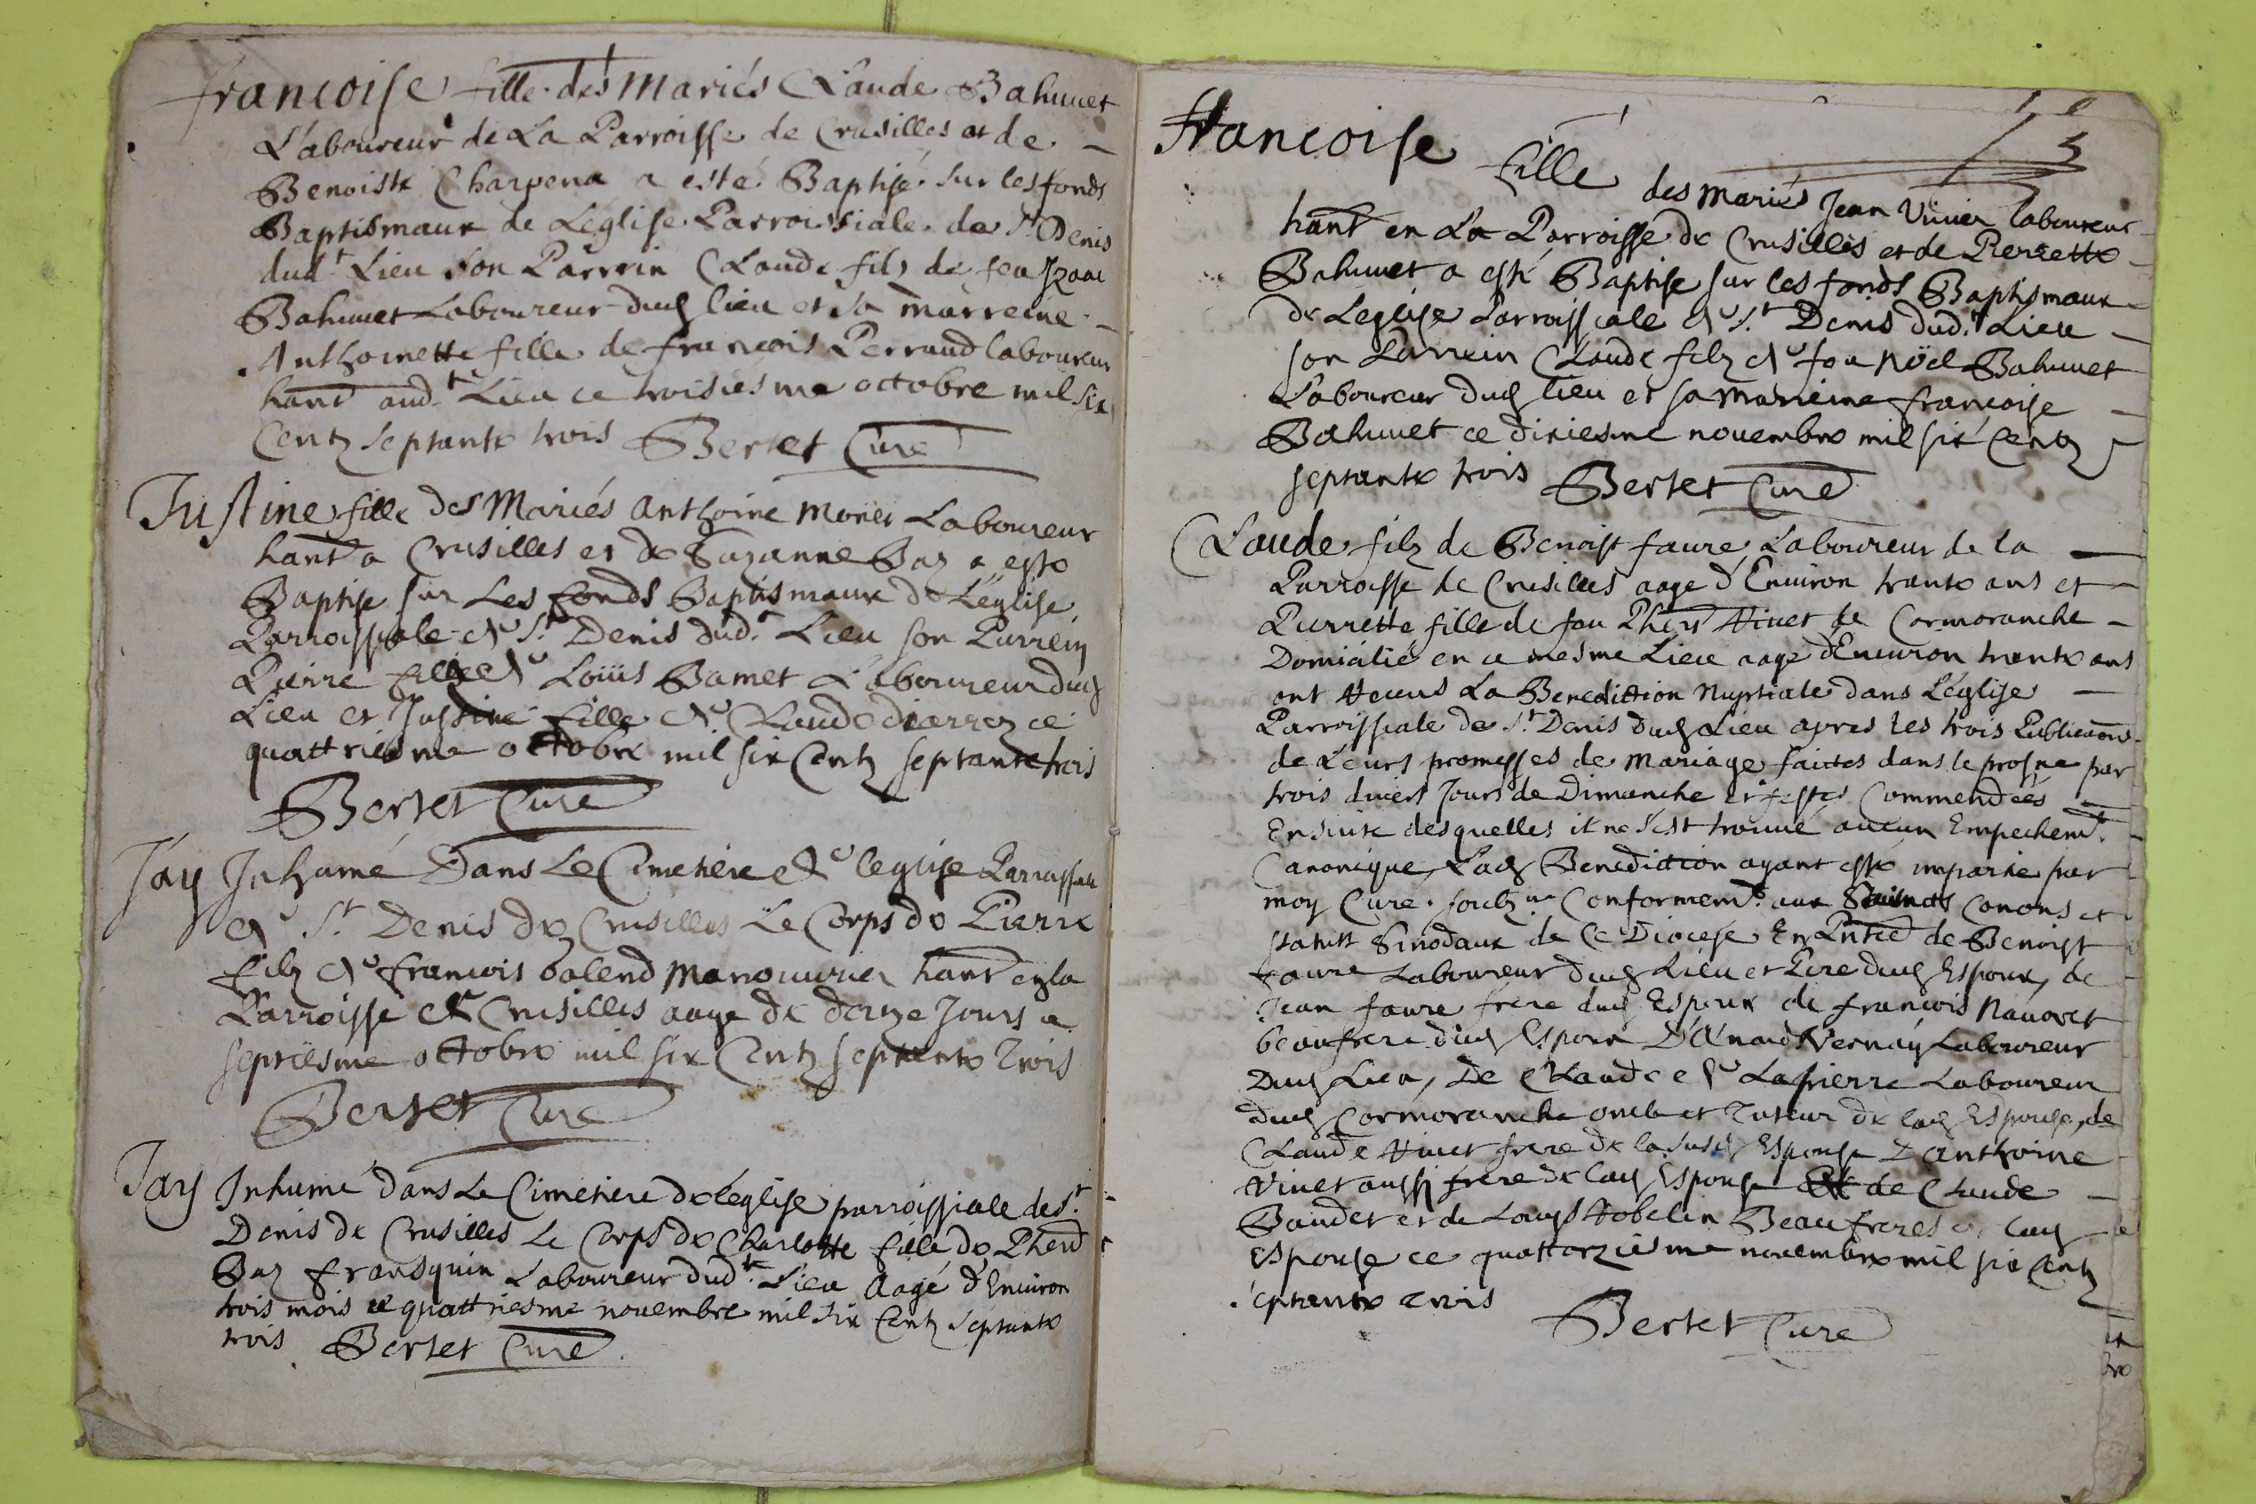 francoise fille des Mariés Claude Bahuuet
Laboureur de La Parroisse de Crusilles et de
Benoiste Charpena a esté Baptisé sur les fonds
Baptismaux de Leglise Parroissiale de St Denis
dudt Lieu son Parrein Claude filz de feu Jzaac
Bahuuet Laboureur dud lieu et sa marreine
Anthoinette fille de francois Perraud laboureur
hant audt Lieu ce troisiesme octobre mil six
Centz septante trois Bertet Cure
Justine fille des Mariés Anthoine Monet Laboureur
hant a Crusilles et de Suzanne Baz a este
Baptise sur Les fonds Baptismaux de Leglise
Parroissiale de St Denis dudt Lieu son Parrein
Pierre de Loüis Bamet Laboureur dud
Lieu et Justine fille de Claude ce
quattriesme octobre mil six Centz septante trois
Bertet Cure
Jay Inhumé Dans Le Cimetiere de leglise
de St Denis de Crusilles Le Corps de Pierre
filz de francois Manouurier hant en la
Parroisse de Crusilles aage de douze Jours ce
septiesme octobre mil six Centz septante Trois
Bertet Cure
Jay Inhumé dans Le Cimetiere de leglise parroissiale de St
Denis de Crusilles Le Corps de Charlotte fille de Phert
Baz fransquin Laboureur dudt Lieu Aagé d'Enuiron
trois mois ce quattriesme nouembre mil six Centz septante
trois Bertet Cure
francoise fille des Mariés Jean Viuier laboureur
hant en La Parroisse de Crusilles et de Pierrette
Bahuuet a esté Baptise sur les fonds Baptismaux
de Leglise Parroissiale de St Denis dudt Lieu
son Parrein Claude filz de feu Nöel Bahuuet
Laboureur dud lieu et sa Marreine francoise
Bahuuet ce dixiesme nouembre mil six Centz
septante trois Bertet Cure
Claude filz de Benoist faure Laboureur de la
Parroisse de Crusilles aage d'Enuiron trante ans et
Pierrette fille de feu Viuet de Cormoranche
Domicilié en ce mesme Lieu aage d'Enuiron trante ans
ont La Benediction Nuptiale dans L'eglise
Parroissiale de St Denis dud Lieu apres les trois Publicaons
de Leurs promesses de Mariage faictes dans le prosne par
trois diuers Jours de Dimanche et festes Commendées
Ensuite desquelles il ne s'est trouué aucun Empechemt
Canonique, Lad Benediction ayant esté impartie par
moy Cure Conformemt aux Saincts Canons et
statutz Sinodaux de Ce Diocese En de Benoist
faure Laboureur dud Lieu et Pere dud Espoux, de
Jean faure frere dud Espoux de francois
beaufrere dud Espoux Vernay Laboureur
Dud Lieu, De Claude de Lapierre Laboureur
dud Cormoranche oncle et Tuteur de lad Espouse, de
Claude Viuet frere de la susd Espouse D'anthoine
Viuet aussi frere de lad Espouse de Claude
Baudet et de Louys Beaufreres de lad
Espouse ce quattorziesme nouembre mil six Centz
septante trois
Bertet Cure